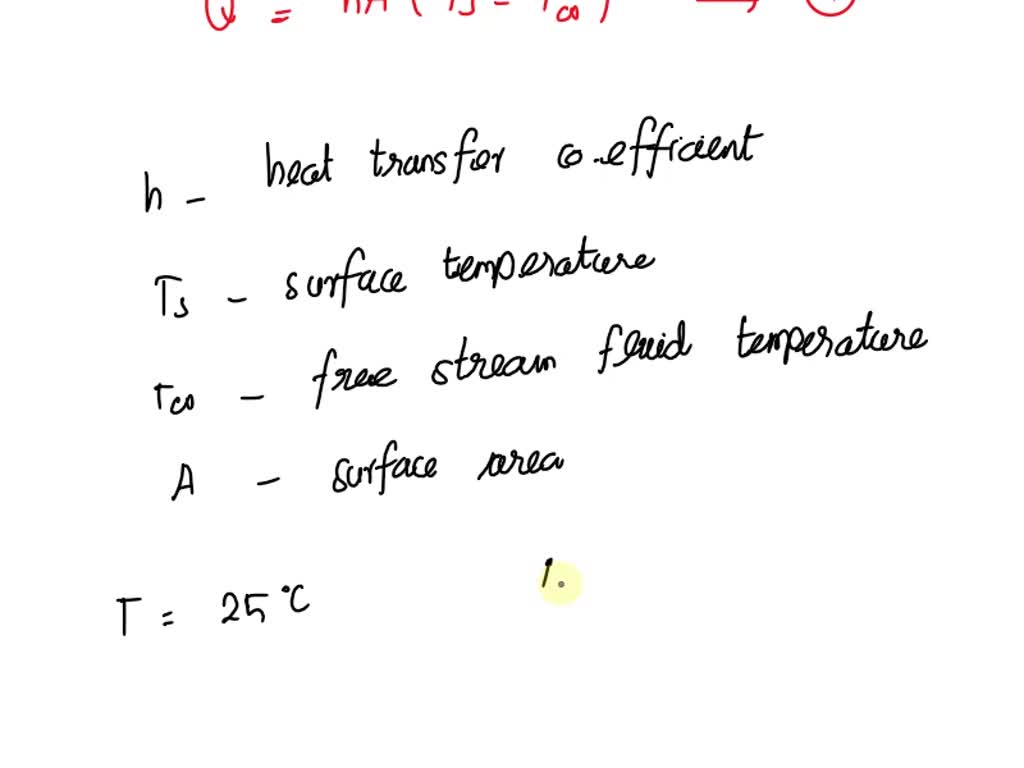 Q = hA ( Ts - T∞ )
h - heat transfer co-efficient
Ts - surface temperature
T∞ - free stream fluid temperature
A - surface area
T = 25 °C